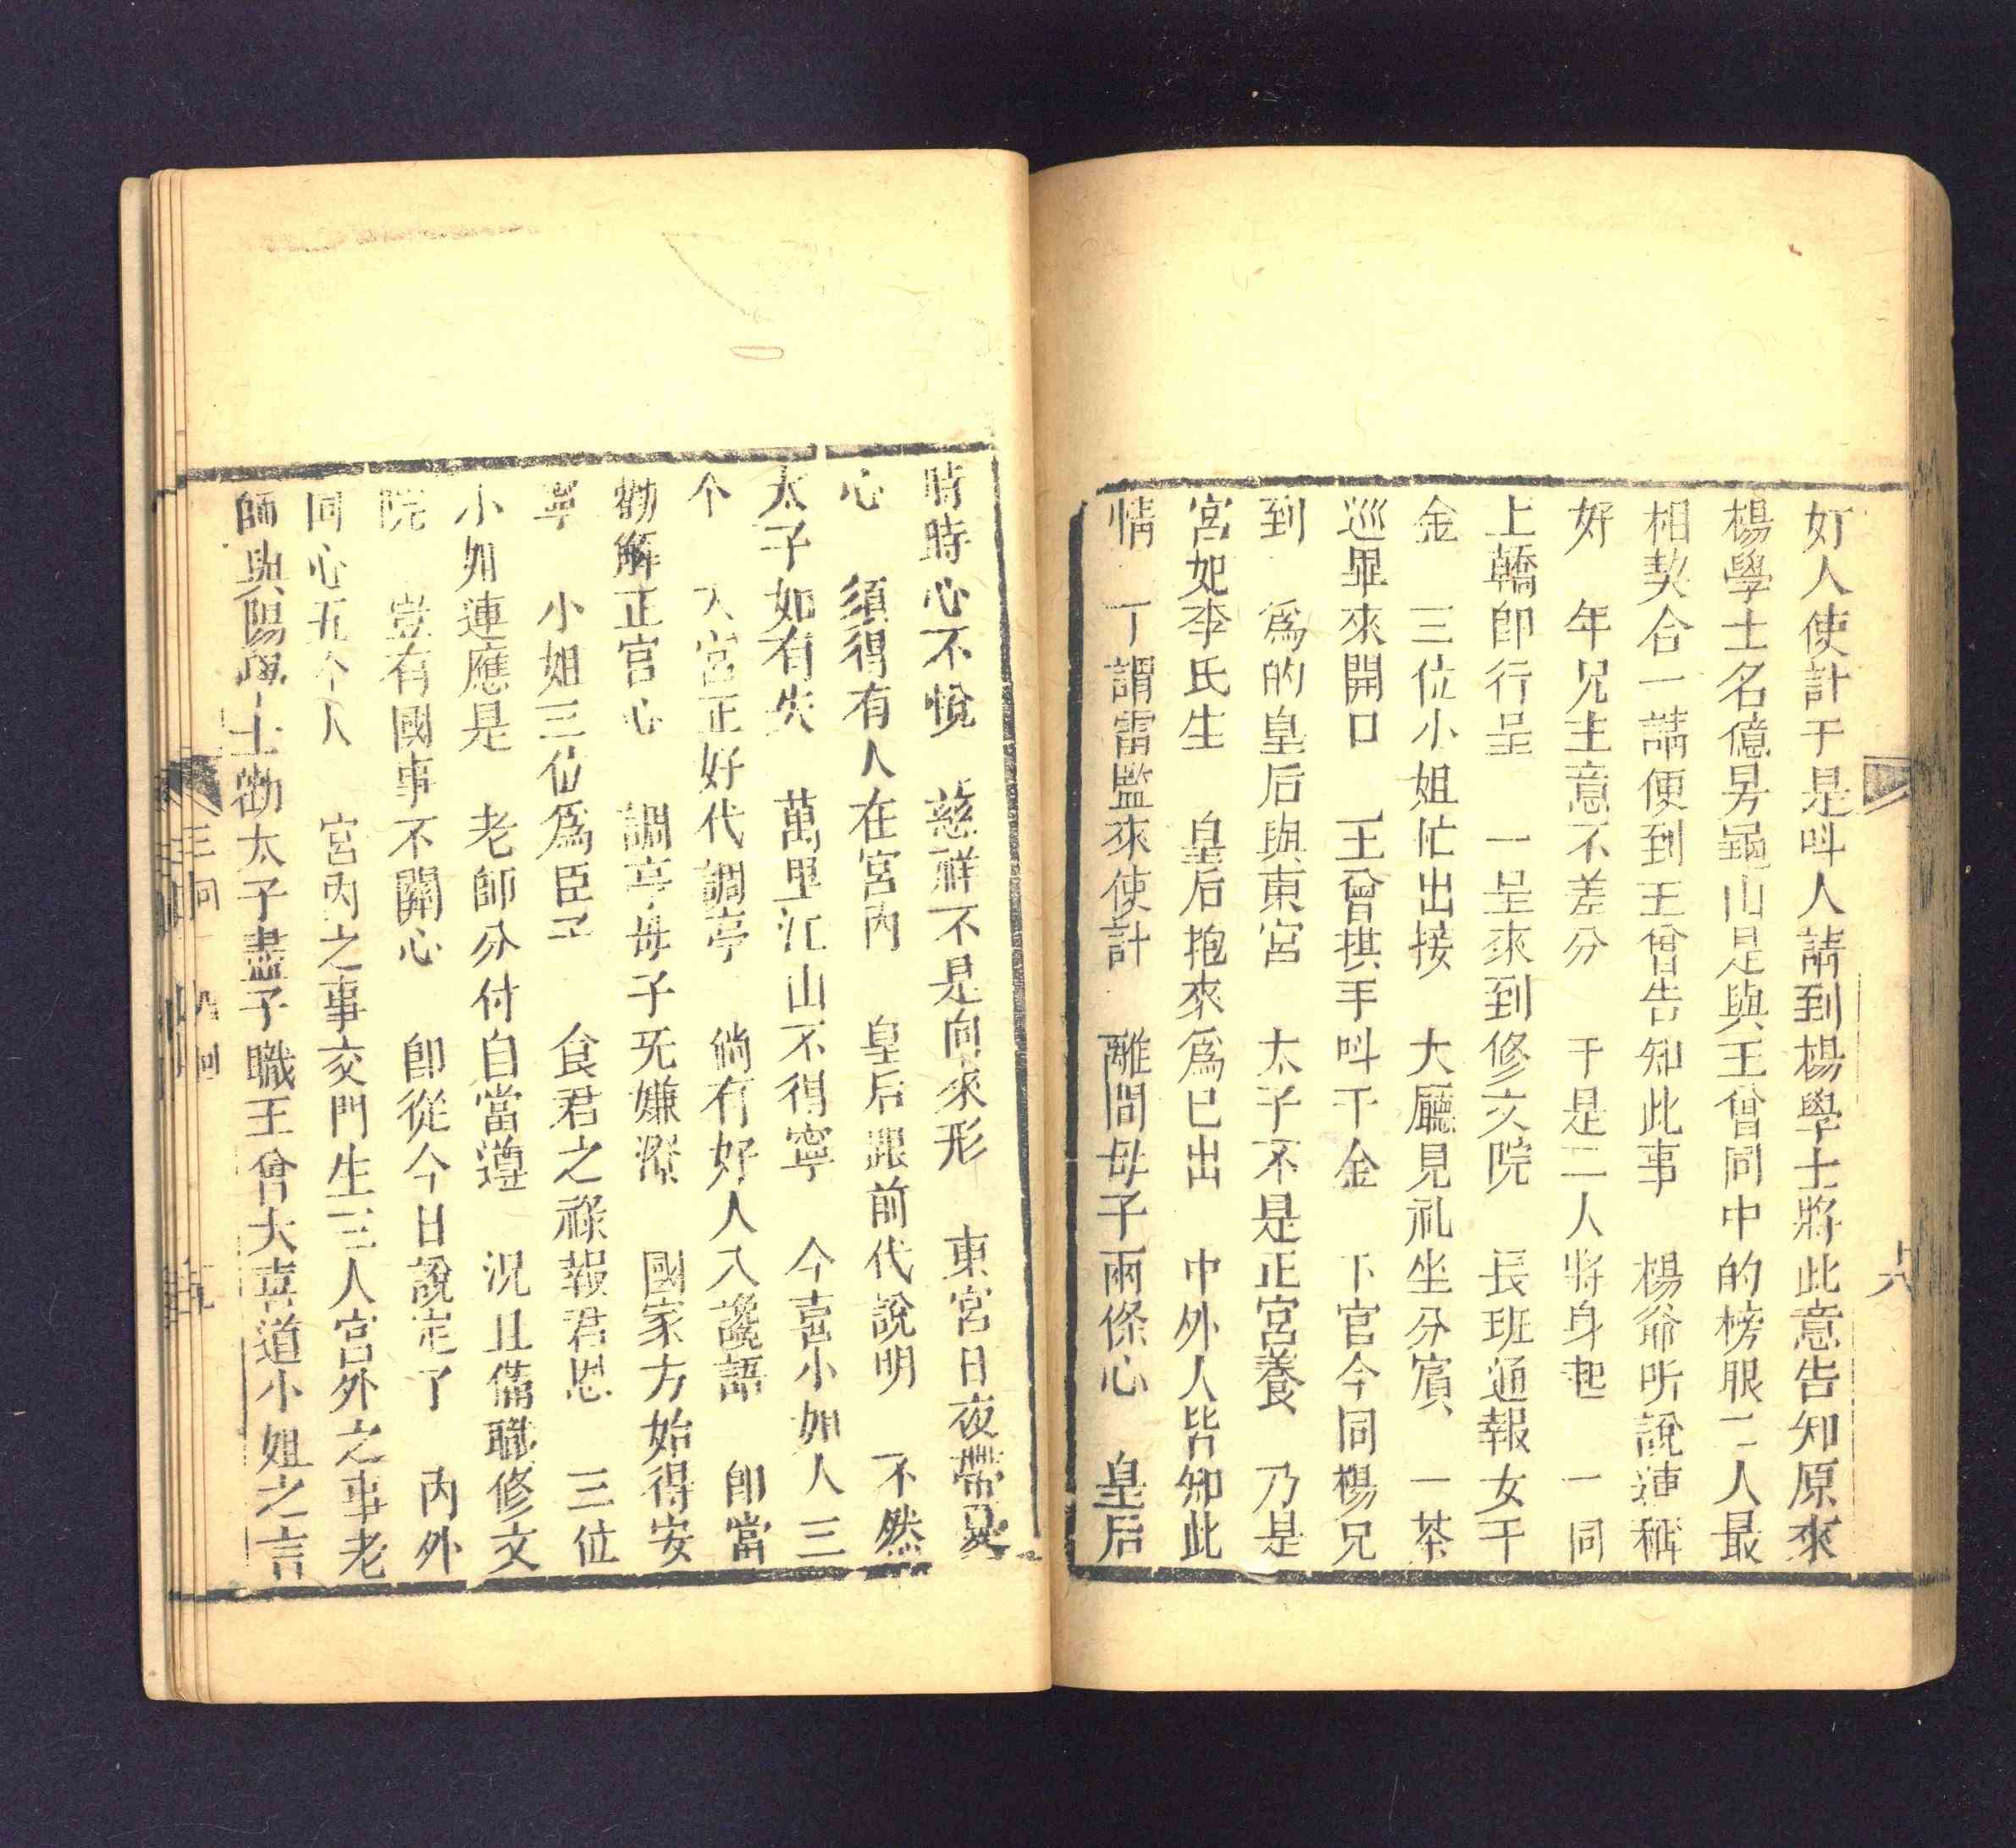 奸人使計于是呌人請到楊學士將此意告知原來
楊學士名億号龜山是與王曾同中的榜眼二人最
相契合一請便到王曾告知此事　楊爺所說連稱
好　年兄主意不差分　于是二人將身起　一同
上轎卽行呈　一呈來到修文院　長班通報女千
金　三位小姐忙出接　大廳見礼坐分賓　一茶
巡畢來開口　王曾拱手呌千金　下官今同楊兄
到　爲的皇后與東宮　太子不是正宮養　乃是
宮妃李氏生　皇后抱來爲已出　中外人皆知此
情　丁謂雷監來使計　離間母子兩條心　皇后
時時心不悅　慈祥不是向來形　東宮日夜常
心　須得有人在宮內　皇后跟前代說明　不然
太子如有失　萬里江山不得寧　今喜小姐人三
个　入宮正好代調亭　倘有奸人入讒語　卽當
勸解正宮心　調亭母子死嫌疑　國家方始得安
寧　小姐三位爲臣子　食君之祿報君恩　三位
小姐連應是　老師分付自當遵　況且偹職修文
院　豈有國事不關心　卽從今日說定了　內外
同心五个人　宮內之事交門生三人宮外之事老
師與陽學士勸太子盡子職王曾大喜道小姐之言